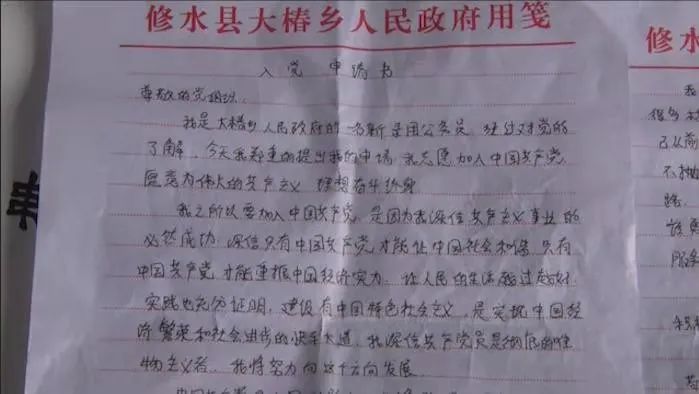 修水县大椿乡人民政府用笺
入党申请书
尊敬的党组织:
我是大椿乡人民政府的一名新录用公务员,经过对党的
了解,今天我郑重的提出我的申请,我志愿加入中国共产党,
愿意为伟大的共产主义理想奋斗终身
我之所以要加入中国共产党,是因为我深信共产主义事业的
必然成功,深信只有中国共产党才能让中国社会和谐,只有
中国共产党才能重振中国经济实力,让人民的生活越过越好.
实践也充分证明,建设有中国特色社会主义,是实现中国经
济繁荣和社会进步的大道,我深信共产党员是彻底的唯
物主义者,我将努力向这个方向发展.
修水